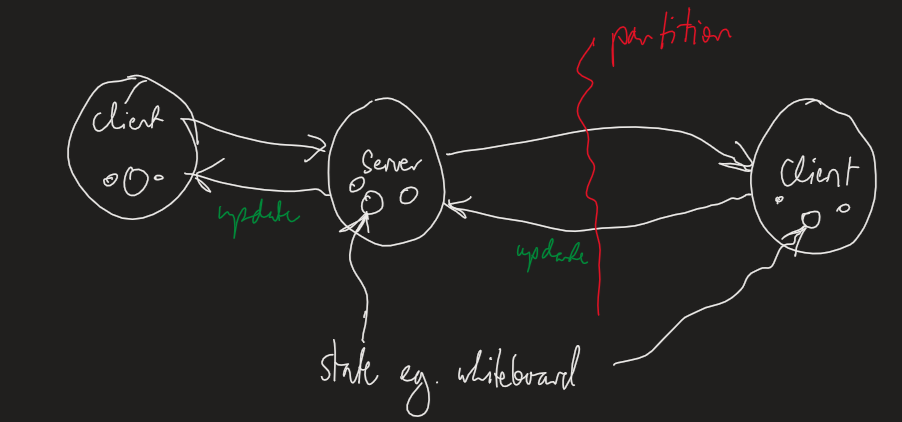 partition
Client
Server
Client
update
update
state eg. whiteboard